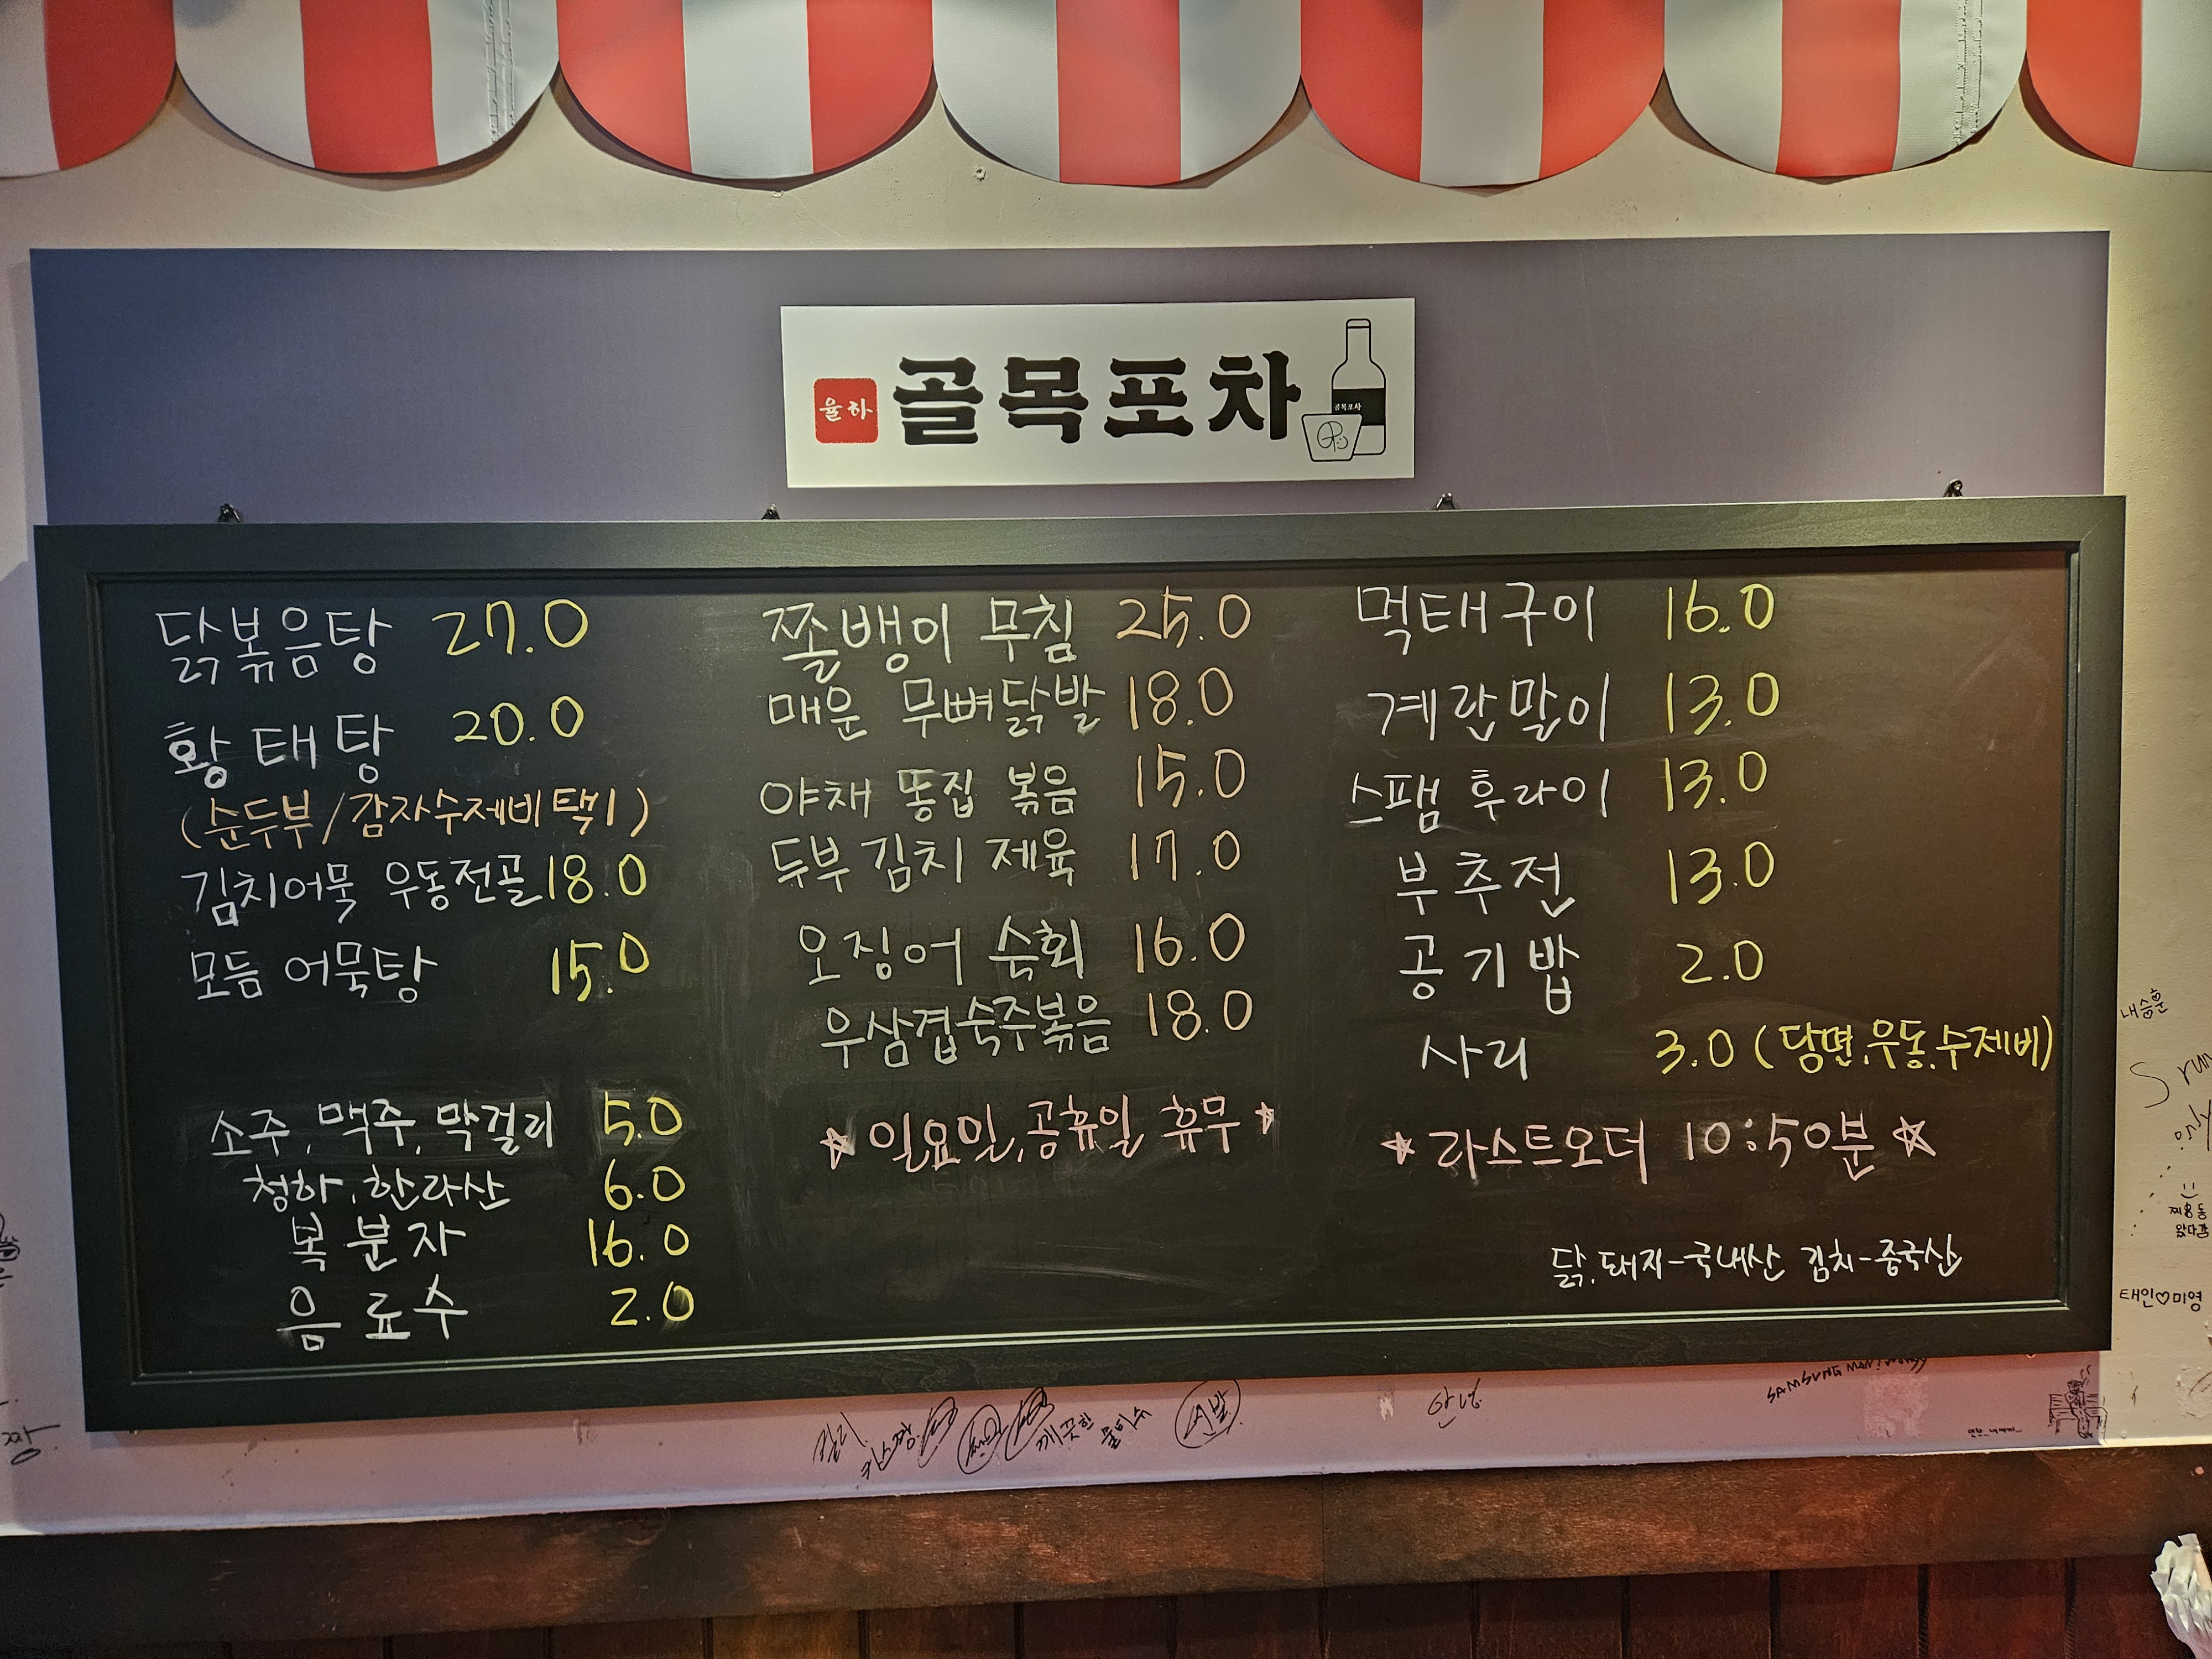 율하 골목포차
골목포차
닭볶음탕 27.0
황태탕 20.0
(순두부/감자수제비 택1)
김치어묵 우동전골 18.0
모듬 어묵탕 15.0
소주, 맥주, 막걸리 5.0
청하, 한라산 6.0
복분자 16.0
음료수 2.0
쫄뱅이 무침 25.0
매운 무뼈닭발 18.0
야채 똥집 볶음 15.0
두부김치 제육 17.0
오징어 숙회 16.0
우삼겹숙주볶음 18.0
☆ 일요일, 공휴일 휴무 ☆
먹태구이 16.0
계란말이 13.0
스팸 후라이 13.0
부추전 13.0
공기밥 2.0
사리 3.0 (당면, 우동, 수제비)
☆ 라스트오더 10:50분 ☆
닭, 돼지-국내산 김치-중국산
내승훈
왔다감
태인♡미영
깨끗한 물티슈
안녕
SAMSUNG MAN!